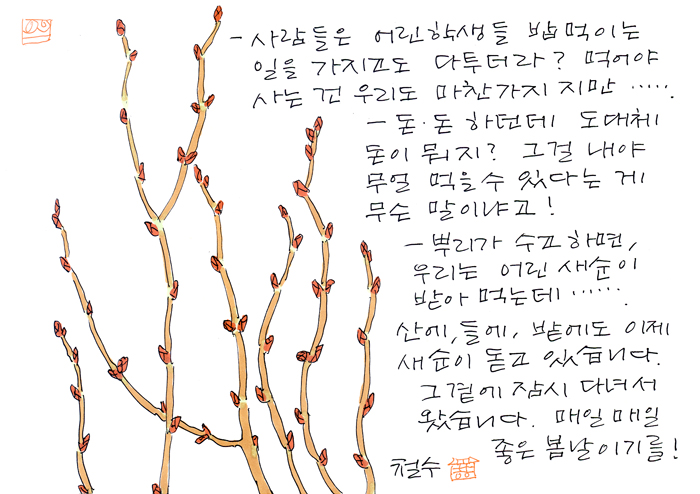 - 사람들은 어린학생들 밥먹이는
일을 가지고도 다투더라? 먹어야
사는 건 우리도 마찬가지 지만 ......
- 돈·돈 하던데 도대체
돈이 뭐지? 그걸 내야
무얼 먹을수 있다는 게
무슨 말이냐고!
- 뿌리가 수고하면,
우리는 어린 새순이
받아 먹는데 ......
산에, 들에, 밭에도 이제
새순이 돋고 있습니다.
그곁에 잠시 다녀서
왔습니다. 매일 매일
좋은 봄날이기를!
철수